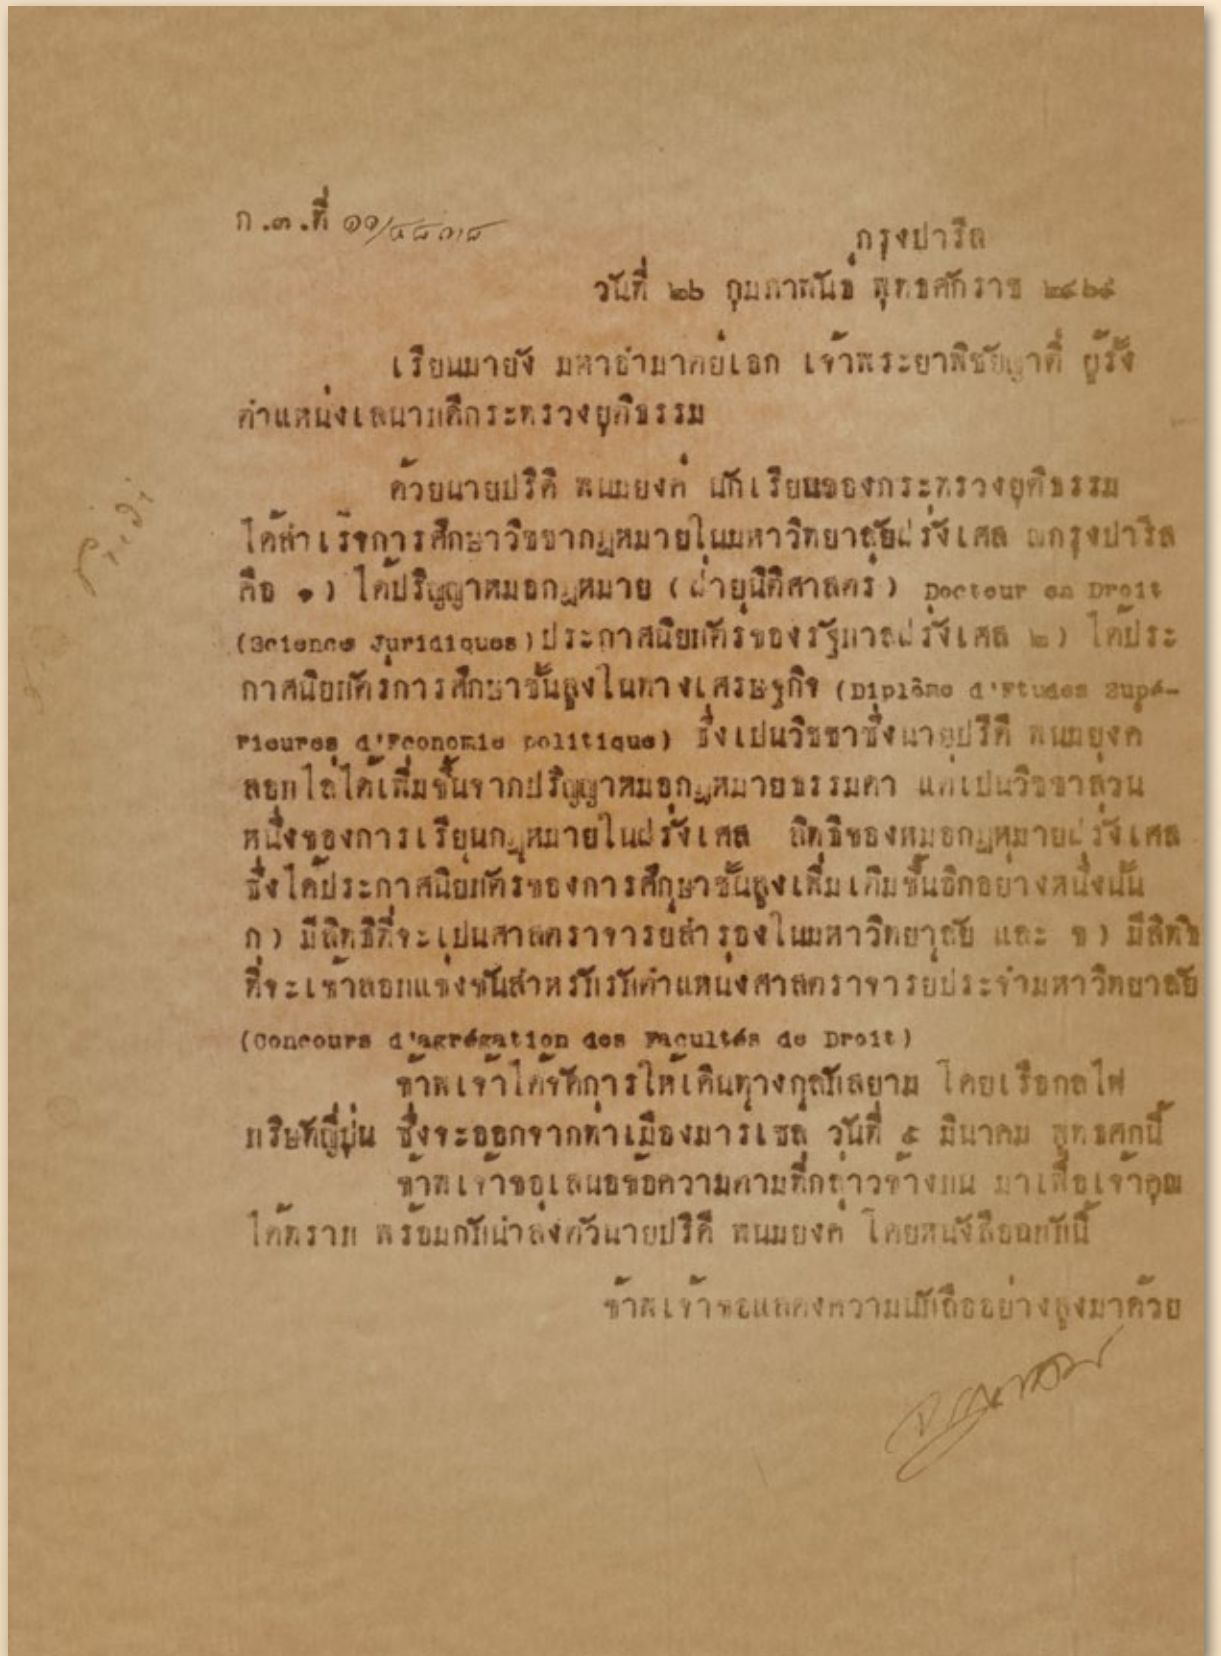 ก.ต.ที่ ๑๑/
กรุงปารีส
วันที่ ๒๖ กุมภาพันธ์ พุทธศักราช ๒๔๖๙
เรียนมายัง มหาอำมาตย์เอก เจ้าพระยาพิชัยญาติ ผู้รั้ง
ตำแหน่งเสนาบดีกระทรวงยุติธรรม
ด้วยนายปรีดี พนมยงค์ นักเรียนของกระทรวงยุติธรรม
ได้สำเร็จการศึกษาวิชชากฎหมายในมหาวิทยาลัยฝรั่งเศส ณกรุงปารีส
คือ ๑) ได้ปริญญาหมอกฎหมาย (ฝ่ายนิติศาสตร์) Docteur en Droit
(Science Juridiques) ประกาศนียบัตร์ของรัฐบาลฝรั่งเศส ๒) ได้ประ
กาศนียบัตร์การศึกษาชั้นสูงในทางเศรษฐกิจ (Diplôme d'Etudes Supé-
rieures d'Economie politique) ซึ่งเปนวิชชาซึ่งนายปรีดี พนมยงค์
สอบไล่ได้เพิ่มขึ้นจากปริญญาหมอกฎหมายธรรมดา แต่เปนวิชชาส่วน
หนึ่งของการเรียนกฎหมายในฝรั่งเศส สิทธิของหมอกฎหมายฝรั่งเศส
ซึ่งได้ประกาศนียบัตร์ของการศึกษาชั้นสูงเพิ่มเติมขึ้นอีกอย่างหนึ่งนั้น
ก) มีสิทธิที่จะเปนศาสตราจารย์สำรองในมหาวิทยาลัย และ ข) มีสิทธิ
ที่จะเข้าสอบแข่งขันสำหรับรับตำแหน่งศาสตราจารย์ประจำมหาวิทยาลัย
(Concours d'agrégation des Facultés de Droit)
ข้าพเจ้าได้จัดการให้เดินทางกลับสยาม โดยเรือกลไฟ
บริษัทญี่ปุ่น ซึ่งจะออกจากท่าเมืองมาร์เซล วันที่ ๕ มีนาคม พุทธศกนี้
ข้าพเจ้าขอเสนอข้อความตามที่กล่าวข้างบน มาเพื่อเจ้าคุณ
ได้ทราบ พร้อมกับนำส่งตัวนายปรีดี พนมยงค์ โดยหนังสือฉบับนี้
ข้าพเจ้าขอแสดงความนับถืออย่างสูงมาด้วย
Pridi